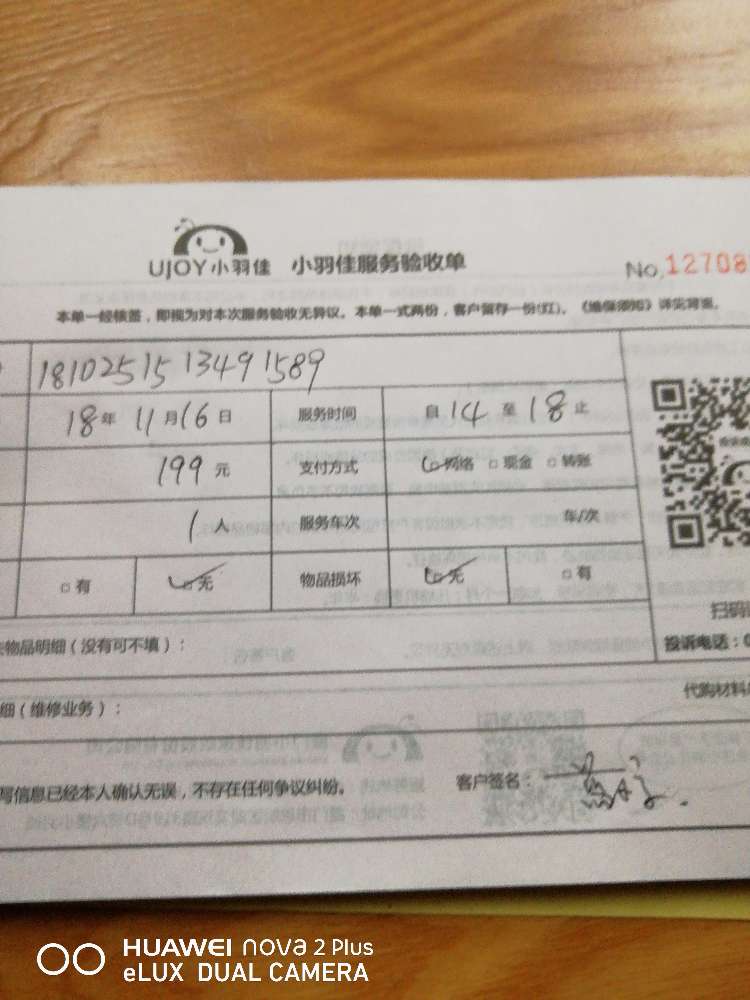 UJOY小羽佳 小羽佳服务验收单
No.12708
本单一经核签，即视为对本次服务验收无异议。本单一式两份，客户留存一份(红)。《维保须知》详见背面。
1810251513491589
18年 11月16日 服务时间 自14至18止
199元 支付方式 □网络 □现金 □转账
1人 服务车次 车/次
□有 □无 物品损坏 □无 □有
扫码
物品明细（没有可不填）：
投诉电话：0
代购材料
细（维修业务）：
写信息已经本人确认无误，不存在任何争议纠纷。 客户签名：
HUAWEI nova 2 Plus
eLUX DUAL CAMERA